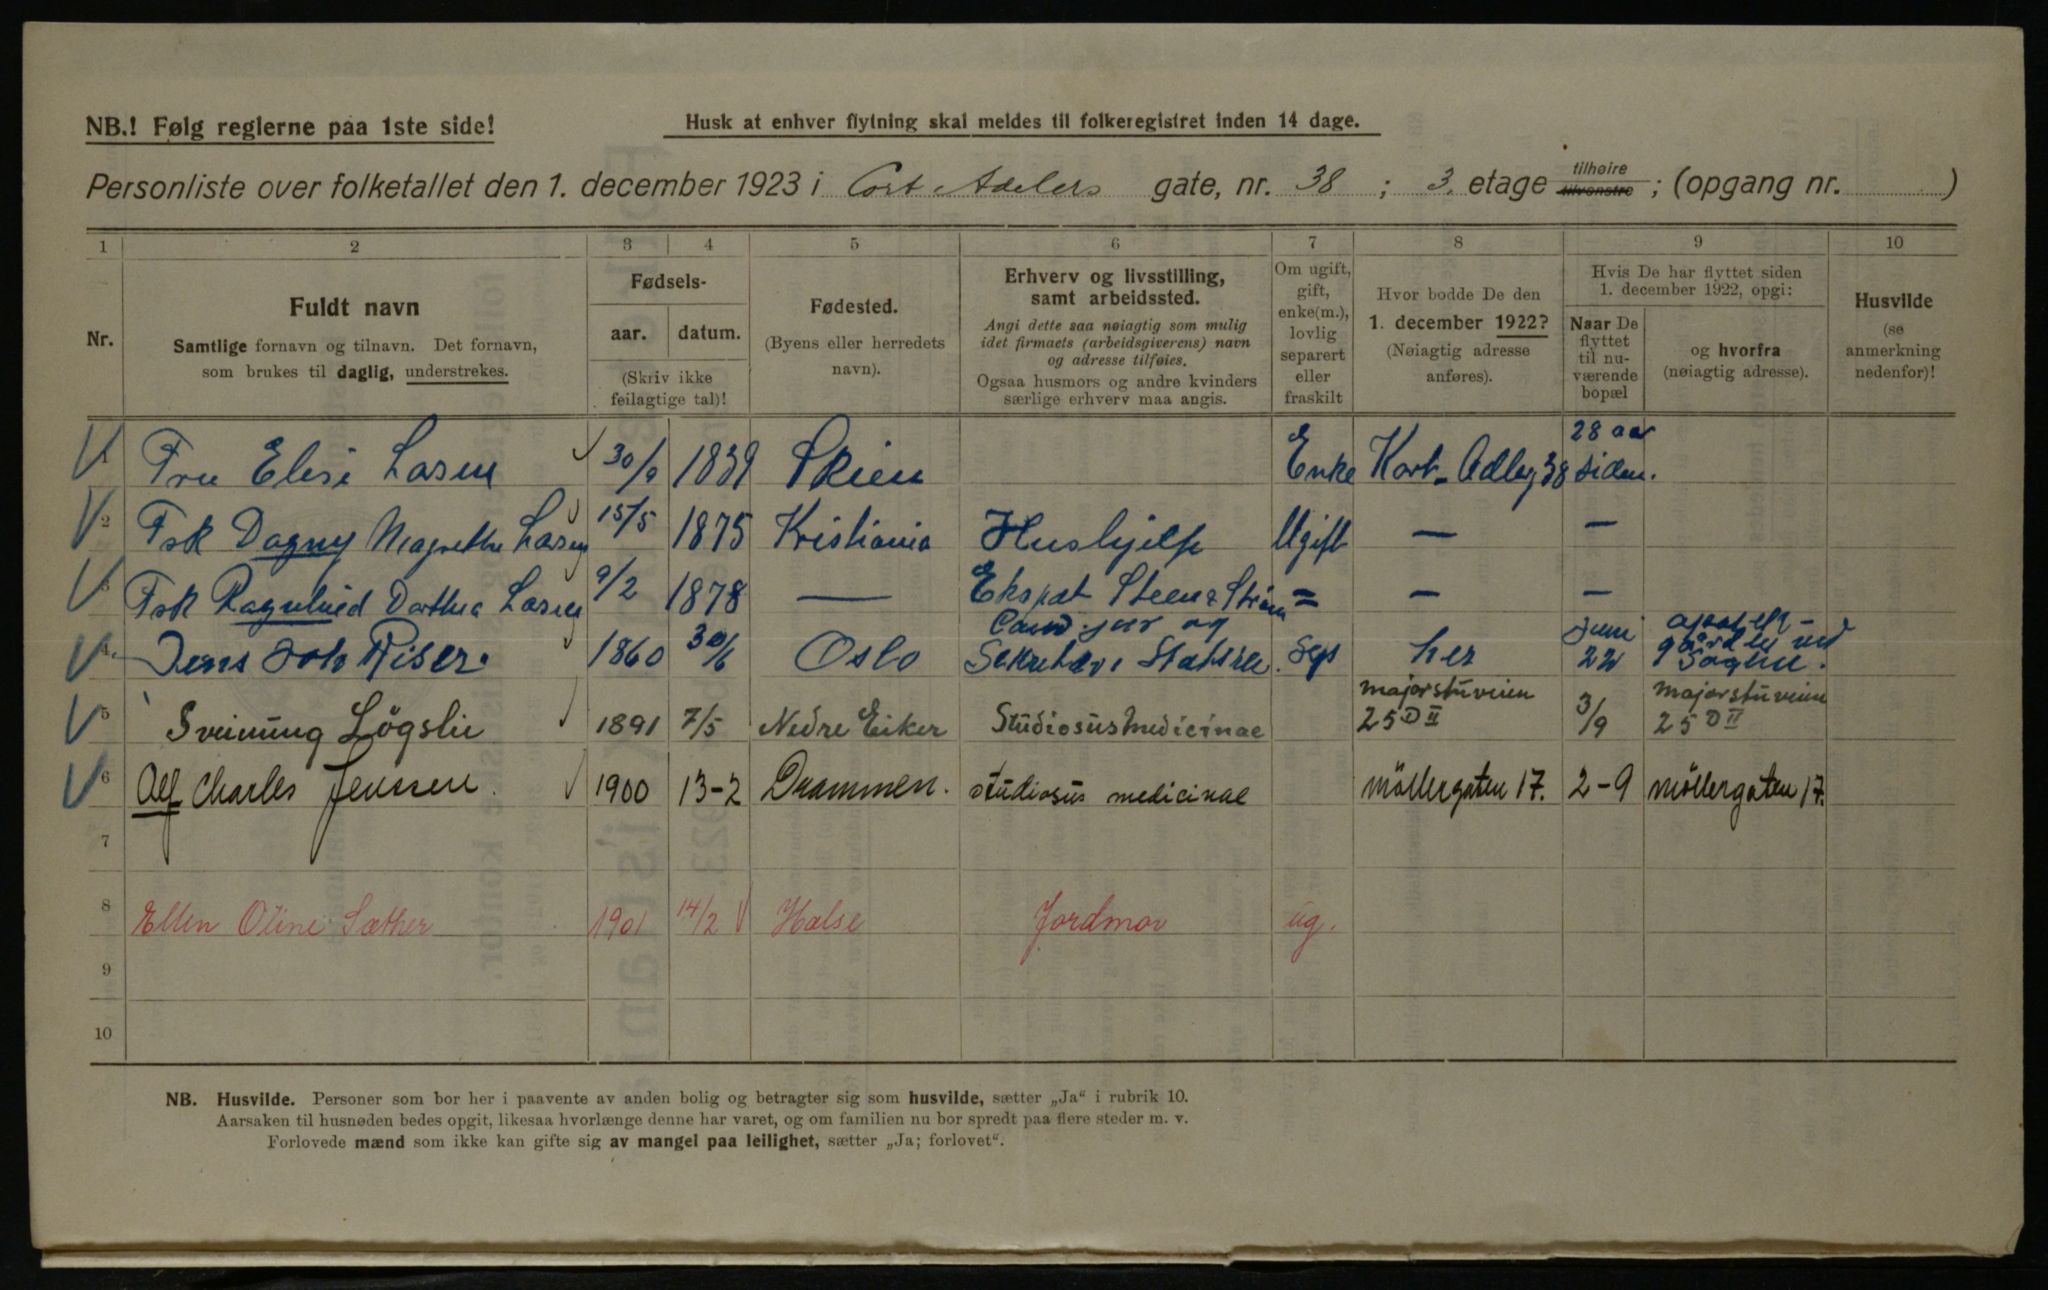 NB.! Følg reglerne paa 1ste side!
Husk at enhver flytning skal meldes til folkeregistret inden 14 dage.
Personliste over folketallet den 1. december 1923 i Cort Adelers gate, nr. 38 ; 3. etage tilhøire tilvenstre ; (opgang nr. )
1 2 3 4 5 6 7 8 9 10
Nr.
Fuldt navn
Samtlige fornavn og tilnavn. Det fornavn,
som brukes til daglig, understrekes.
Fødsels-
aar. datum.
(Skriv ikke
feilagtige tal)!
Fødested.
(Byens eller herredets
navn).
Erhverv og livsstilling,
samt arbeidssted.
Angi dette saa nøiagtig som mulig
idet firmaets (arbeidsgiverens) navn
og adresse tilføies.
Ogsaa husmors og andre kvinders
særlige erhverv maa angis.
Om ugift,
gift,
enke(m.),
lovlig
separert
eller
fraskilt
Hvor bodde De den
1. december 1922?
(Nøiagtig adresse
anføres).
Hvis De har flyttet siden
1. december 1922, opgi:
Naar De
flyttet
til nu-
værende
bopæl
og hvorfra
(nøiagtig adresse).
Husvilde
(se
anmerkning
nedenfor)!
1 Fru Elise Lasen 30/9 1839 Skien Enke Kort Adlerg 38 28 aar siden.
2 Frk Dagny Magrethe Lasen 15/5 1875 Kristiania Hushjelp Ugift — —
3 Frk Ragnhild Dorthea Lasen 9/2 1878 — Ekspet Steen & Strøm = — —
4. Jens Joh Riser 1860 30/6 Oslo Cand jur og Sekretær i Sep her Juni 22
5 Sveinung Lögslie 1891 7/5 Nedre Eiker Studiosus Medicinae majorstuveien 25 D II 3/9 majorstuveien 25 D II
6 Alf Charles Jenssen. 1900 13-2 Drammen. studiosus medicinae Möllergaten 17. 2-9 Möllergaten 17.
7
8 Ellen Oline Sæther 1901 14/2 Halse Jordmor ug.
9
10
NB. Husvilde. Personer som bor her i paavente av anden bolig og betragter sig som husvilde, sætter „Ja“ i rubrik 10.
Aarsaken til husnøden bedes opgit, likesaa hvorlænge denne har varet, og om familien nu bor spredt paa flere steder m. v.
Forlovede mænd som ikke kan gifte sig av mangel paa leilighet, sætter „Ja; forlovet“.